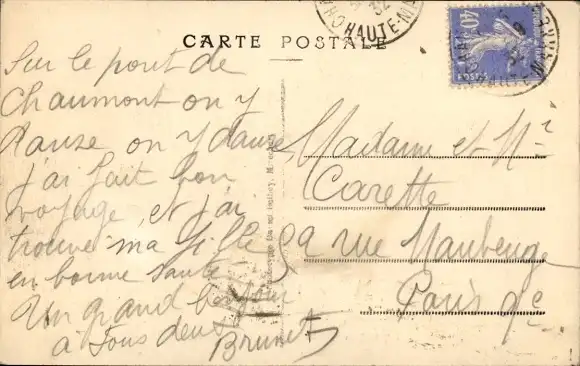 CARTE POSTALE
HAUTE-M
32
40
Sur le pont de
Chaumont on y
danse, on y danse
j'ai fait bon
voyage, et j'ai
trouvé ma fille
en bonne santé
Un grand bonjour
à tous deux
Brunet
Madame et Mr
Carette
59 rue Maubeuge
Paris 9e